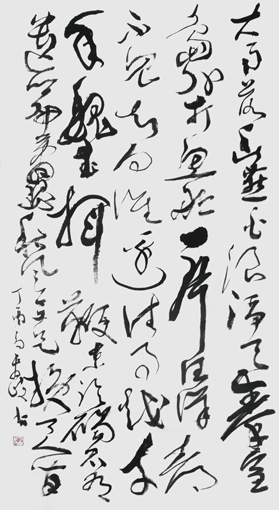 大雨落幽燕白浪滔天秦皇
岛外打鱼船一片汪洋都
不见知向谁边往事越千
年魏武挥鞭东临碣石有
遗篇萧瑟秋风今又是换了人间
丁酉 书